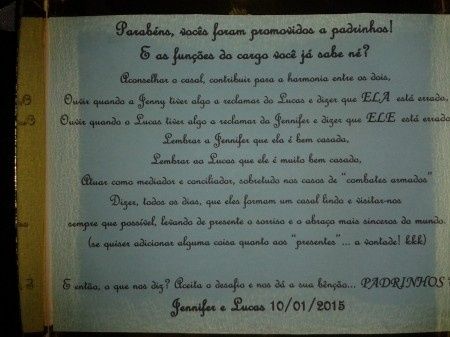 Parabéns, vocês foram promovidos a padrinhos!
E as funções do cargo você já sabe né?
Aconselhar o casal, contribuir para a harmonia entre os dois,
Ouvir quando a Jenny tiver algo a reclamar do Lucas e dizer que ELA está errada,
Ouvir quando o Lucas tiver algo a reclamar da Jennifer e dizer que ELE está errado
Lembrar a Jennifer que ela é bem casada,
Lembrar ao Lucas que ele é muito bem casado,
Atuar como mediador e conciliador, sobretudo nos casos de "combates armados"
Dizer, todos os dias, que eles formam um casal lindo e visitar-nos
sempre que possível, levando de presente o sorriso e o abraço mais sinceros do mundo.
(se quiser adicionar alguma coisa quanto aos "presentes"... a vontade! kkk)
E então, o que nos diz? Aceita o desafio e nos dá a sua bênção... PADRINHOS
Jennifer e Lucas 10/01/2015